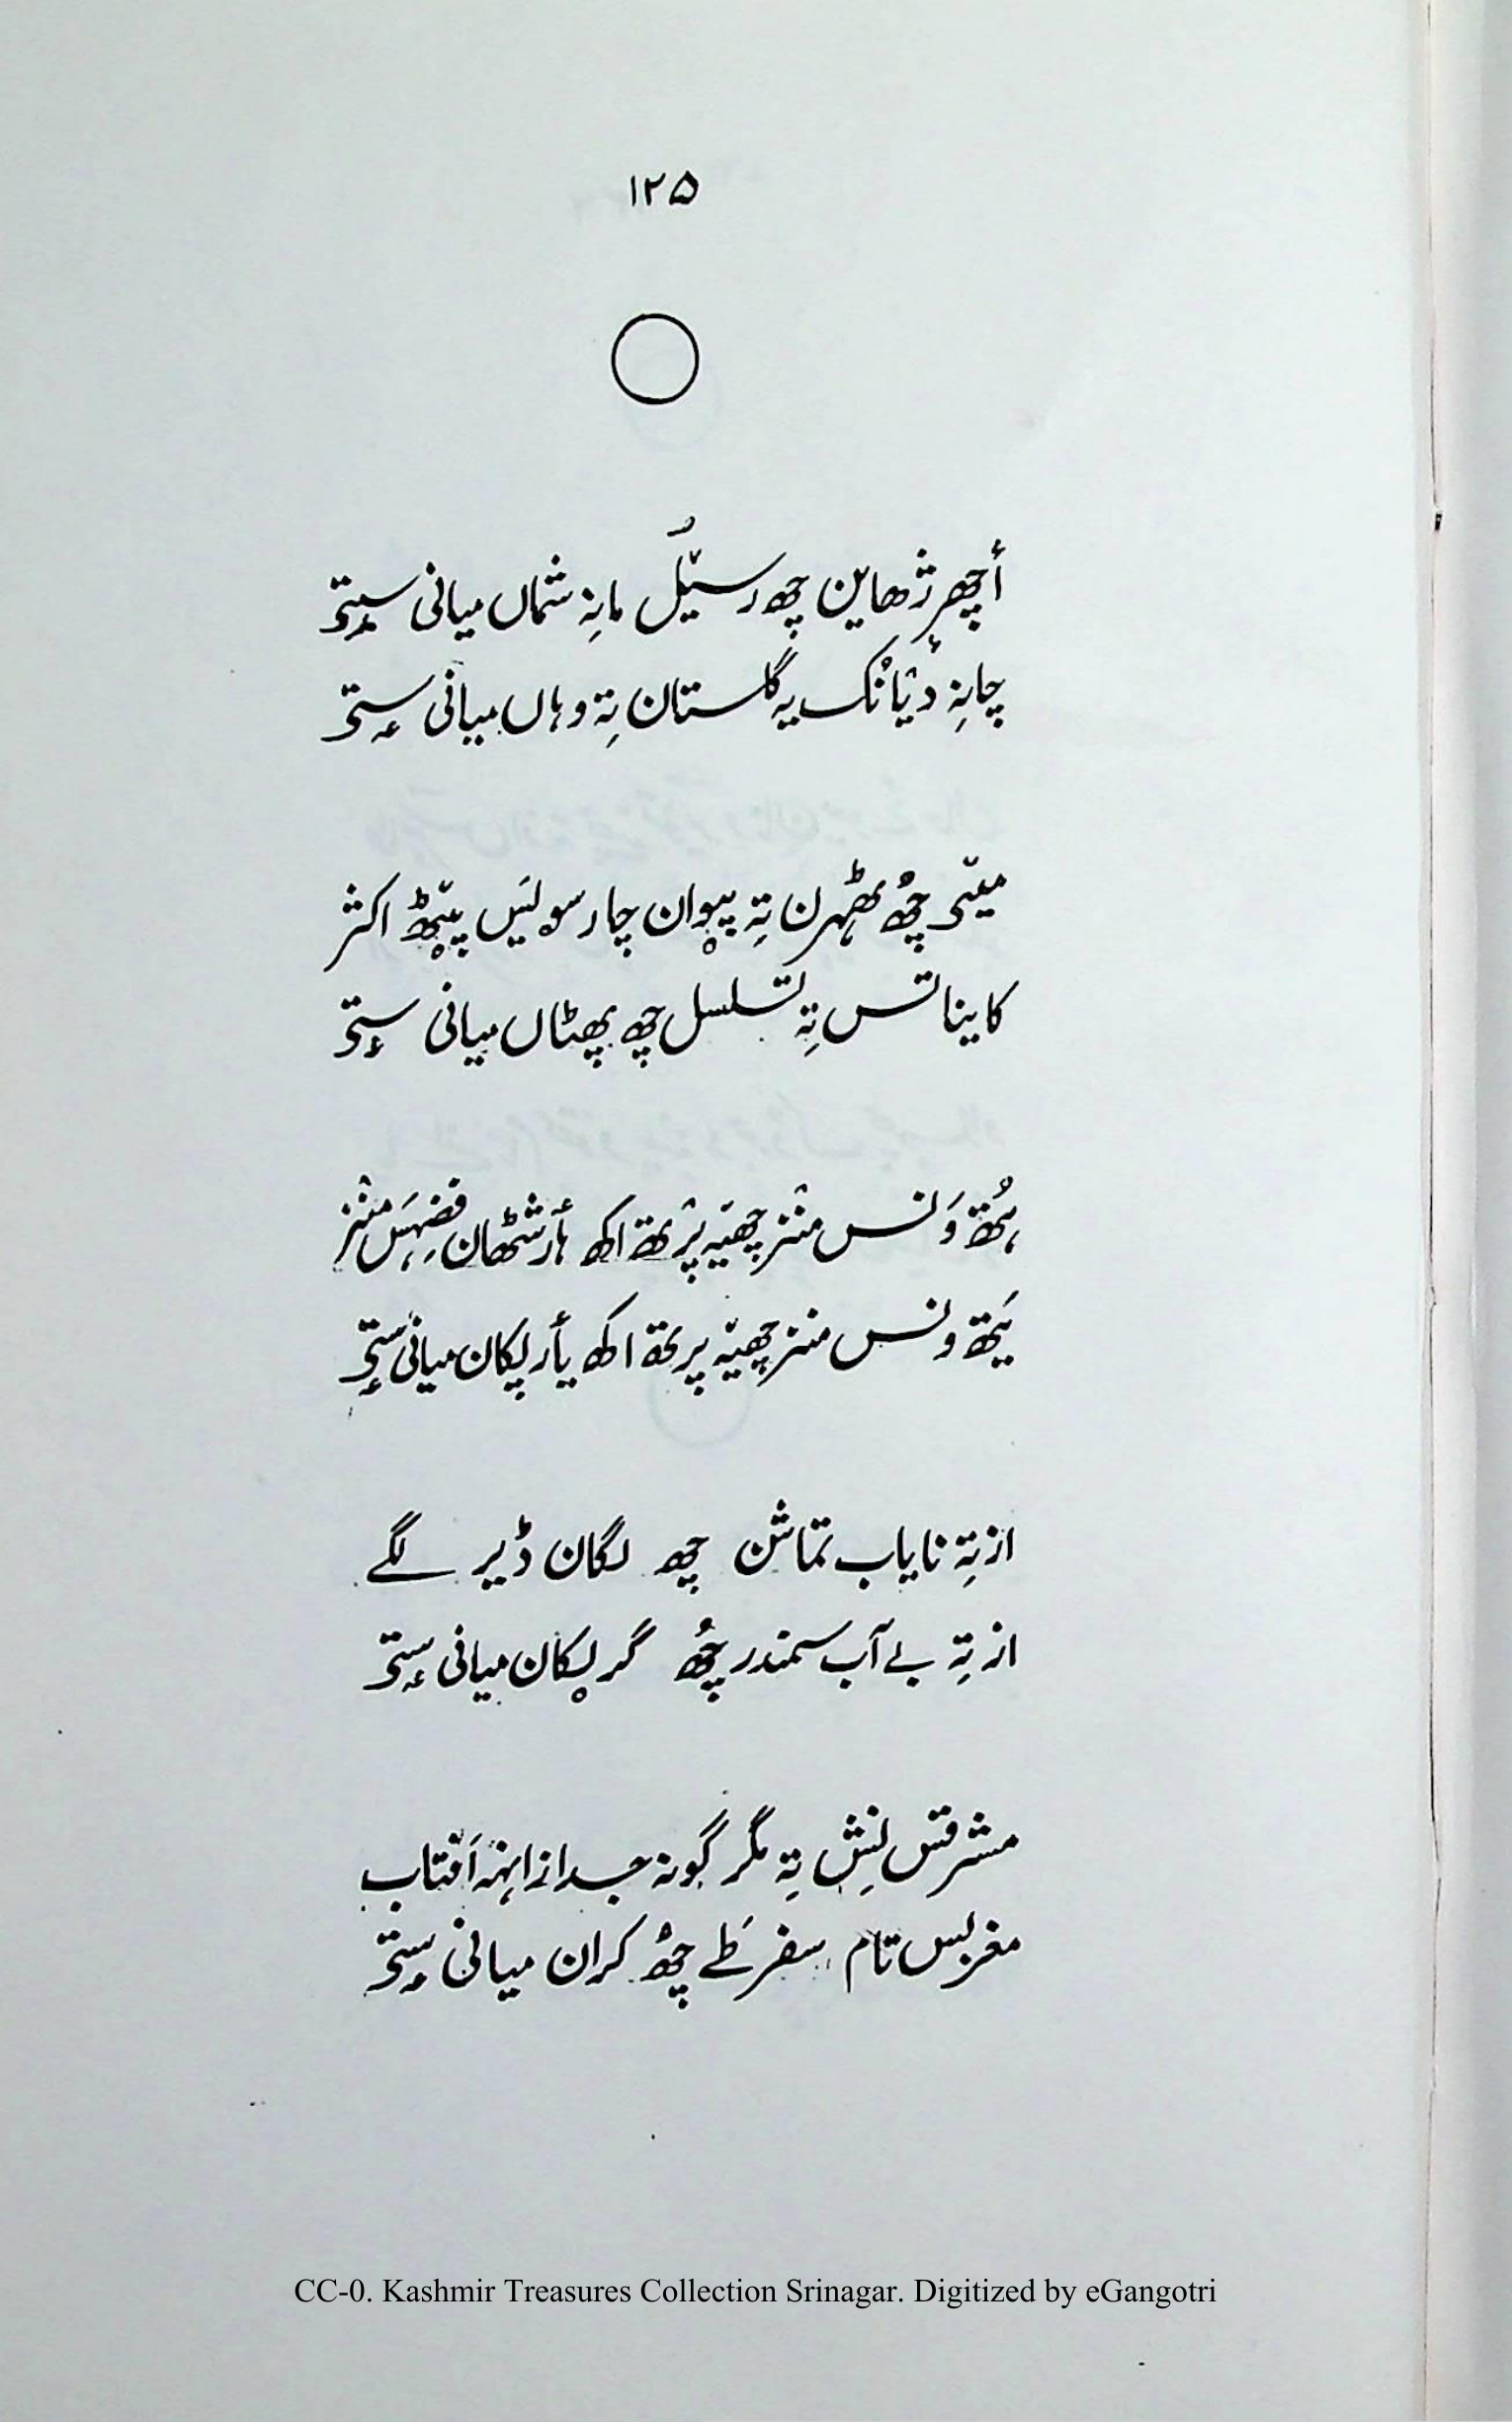 ۱۲۵
أچھر ژھاین چھ رسیٚل مانہِ شماں میانی سۭتۍ
چانہِ دٔیٹانُک یہ گلستان تہِ وہاں میانی سۭتۍ
میٚتۍ چھُ ٹھہرن تہِ پیوان چارسولیَس پیٚٹھ اکثر
کایناتس تہِ تسلسل چھ پھٹاں میانی سۭتۍ
ہُتھ وَنس منٛز چھیٚہ پرٛتھ اکھ ہأر شٹھان فضہَس منٛز
یَتھ ونس منز چھیٚہ پرتھ اکھ یأر پکان میانی سۭتۍ
از تہِ نایاب تماشن چھ لگان ڈیر لگے
از تہِ بے آب سمندر چھُ گرٕکان میانی سۭتۍ
مشرقس نِش تہِ مگر گونہ جدا ز انہٕ آفتاب
مغربس تام سفر طَے چھُ کران میانی سۭتۍ
CC-0. Kashmir Treasures Collection Srinagar. Digitized by eGangotri